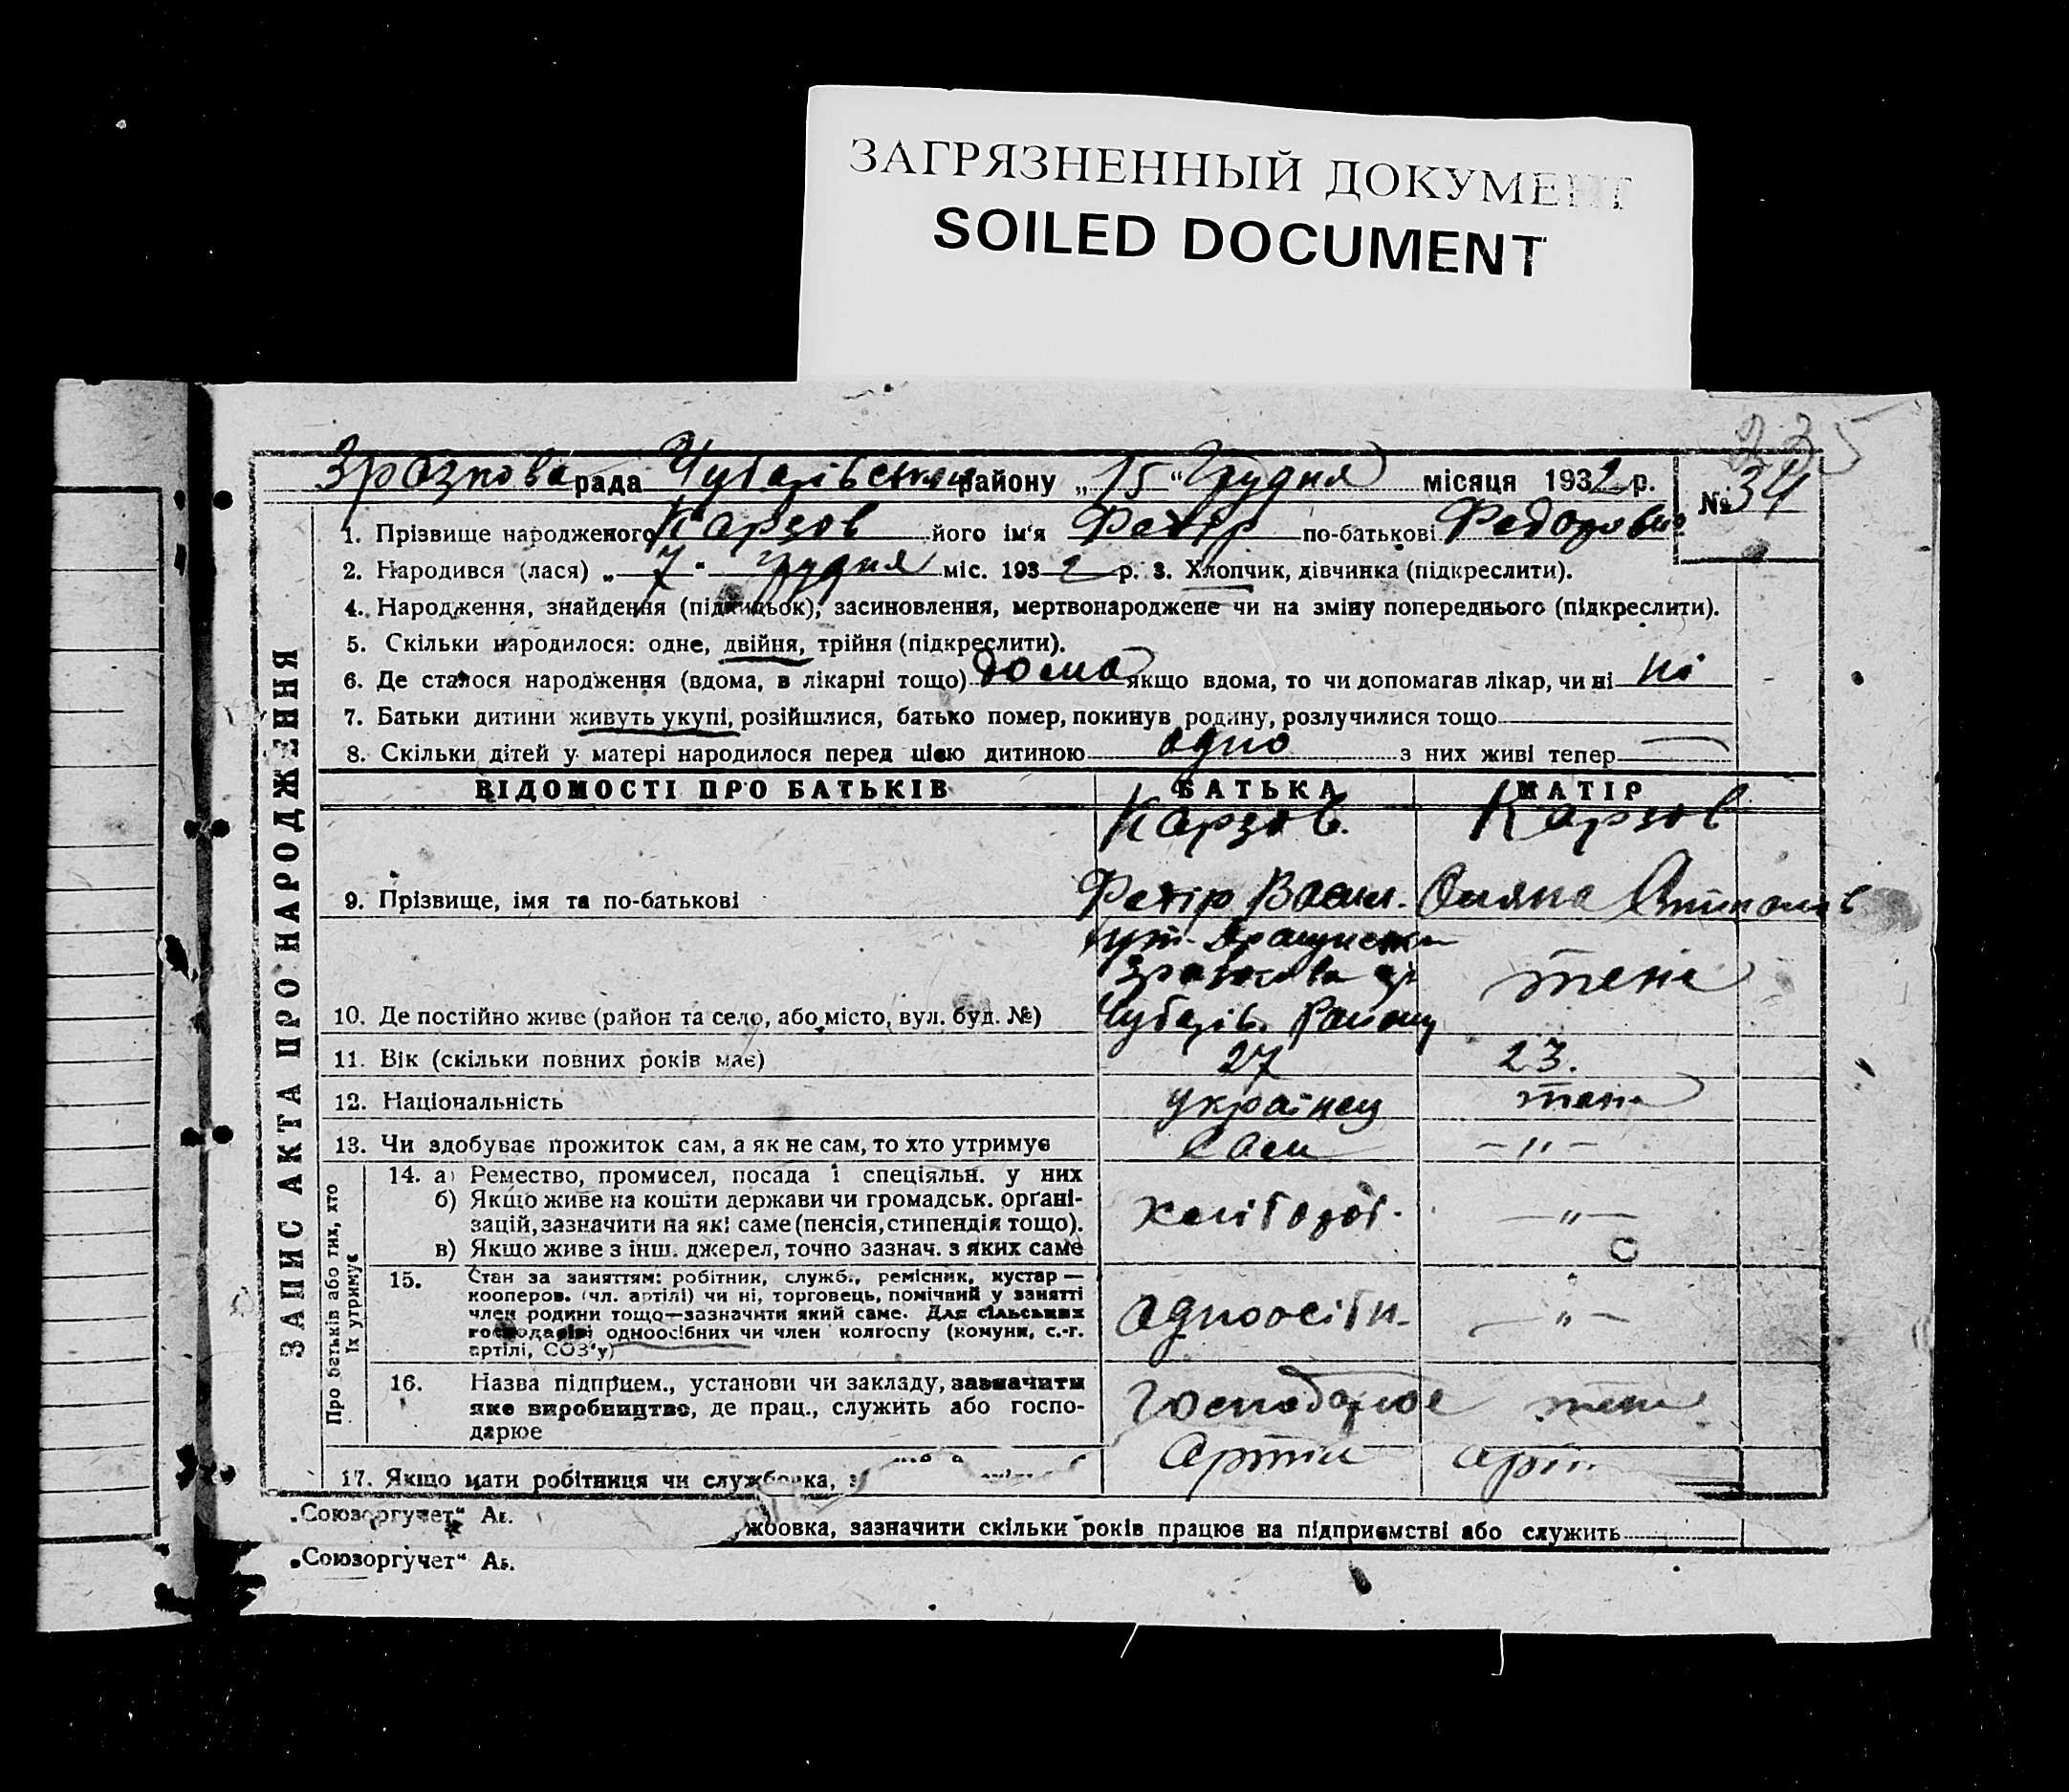 ЗАГРЯЗНЕННЫЙ ДОКУМЕНТ
SOILED DOCUMENT
235
рада района „15“ Грудня місяця 1932 р. № 34
ЗАПИС АКТА ПРО НАРОДЖЕННЯ
1. Прізвище народженого Карзов його ім'я Федір по-батькові
2. Народився (лася) „7“ грудня міс. 1932 р. 3. Хлопчик, дівчинка (підкреслити).
4. Народження, знайдення (підкидьок), засиновлення, мертвонароджене чи на зміну попереднього (підкреслити).
5. Скільки народилося: одне, двійня, трійня (підкреслити).
6. Де сталося народження (вдома, в лікарні тощо) дома якщо вдома, то чи допомагав лікар, чи ні ні
7. Батьки дитини живуть укупі, розійшлися, батько помер, покинув родину, розлучилися тощо
8. Скільки дітей у матері народилося перед цією дитиною одно з них живі тепер —
ВІДОМОСТІ ПРО БАТЬКІВ БАТЬКА МАТІР
Карзов. Карзов
9. Прізвище, імя та по-батькові Федір
10. Де постійно живе (район та село, або місто, вул. буд. №) Району
11. Вік (скільки повних років має) 27 23.
12. Національність українец
13. Чи здобуває прожиток сам, а як не сам, то хто утримує сам -"-
Про батьків або тих, хто їх утримує
14. а) Ремество, промисел, посада і спеціяльн. у них
б) Якщо живе на кошти держави чи громадськ. орґані-
зацій, зазначити на які саме (пенсія, стипендія тощо). —"—
в) Якщо живе з інш. джерел, точно зазнач. з яких саме
15. Стан за заняттям: робітник, служб., ремісник, кустар —
кооперов. (чл. артілі) чи ні, торговець, помічний у занятті
член родини тощо—зазначити який саме. Для сільських —"—
господарів: одноосібних чи член колгоспу (комуни, с.-г.
артілі, СОЗ'у)
16. Назва підприєм., установи чи закладу, зазначити
яке виробництво, де прац., служить або госпо-
дарює
17. Якщо мати робітниця чи службовка,
„Союзоргучет“
жбовка, зазначити скільки років працює на підприємстві або служить
„Союзоргучет“